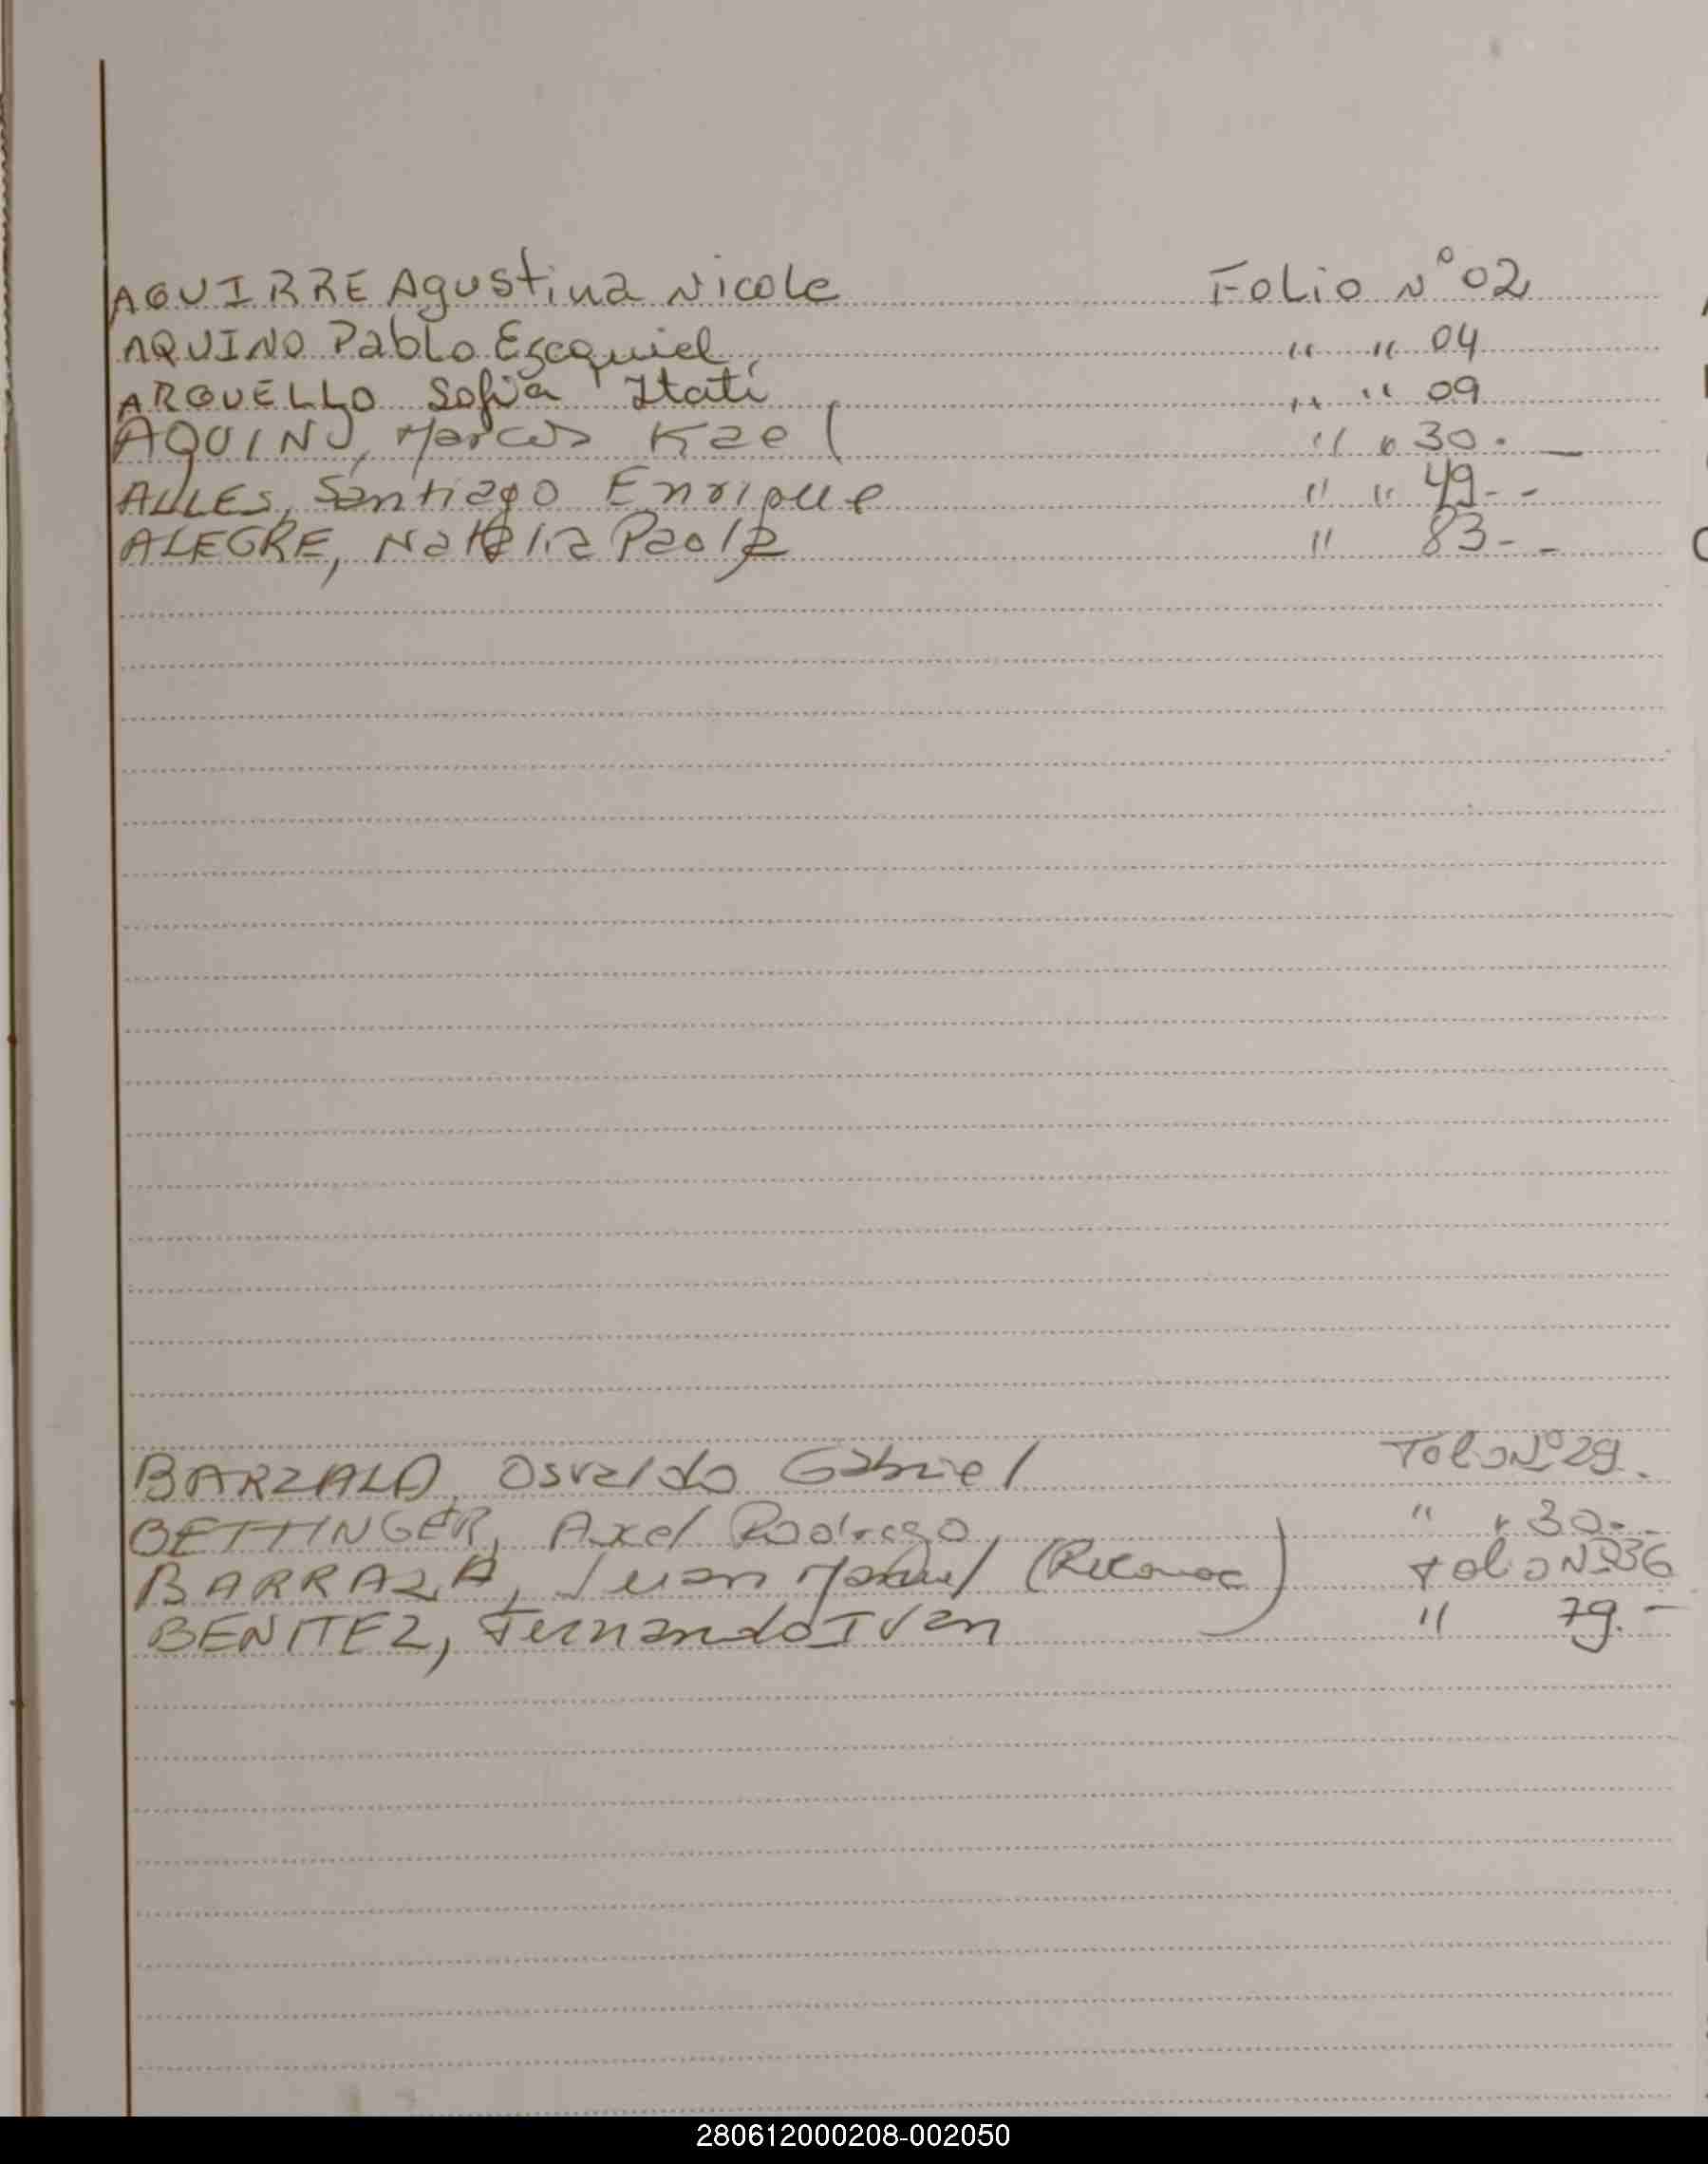 AGUIRRE Agustina Nicole Folio N° 02
AQUINO Pablo Ezequiel " " 04
ARGUELLO Sofia Itatí " " 09
AQUINO, Marcos Kael " " 30.
ALLES, Santiago Enrique " " 49--
ALEGRE, Natalia Paola " 83--
Osvaldo Gabriel Folio Nº 29.
BETTINGER, Axel Rodrigo " " 30.-
BARRAZA, Juan Manuel (Reconoc) Folio Nº 36
BENITEZ, Fernando Ivan " 79.-
280612000208-002050